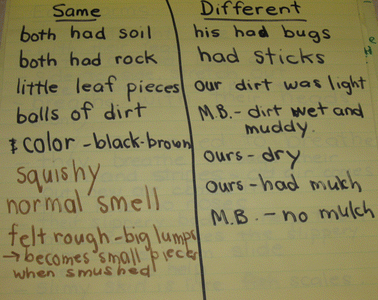 Same
both had soil
both had rock
little leaf pieces
balls of dirt
color - black-brown
squishy
normal smell
felt rough - big lumps
→ becomes small pieces
when smushed
Different
his had bugs
had sticks
our dirt was light
M.B. - dirt wet and
muddy.
ours - dry
ours - had mulch
M.B. - no mulch